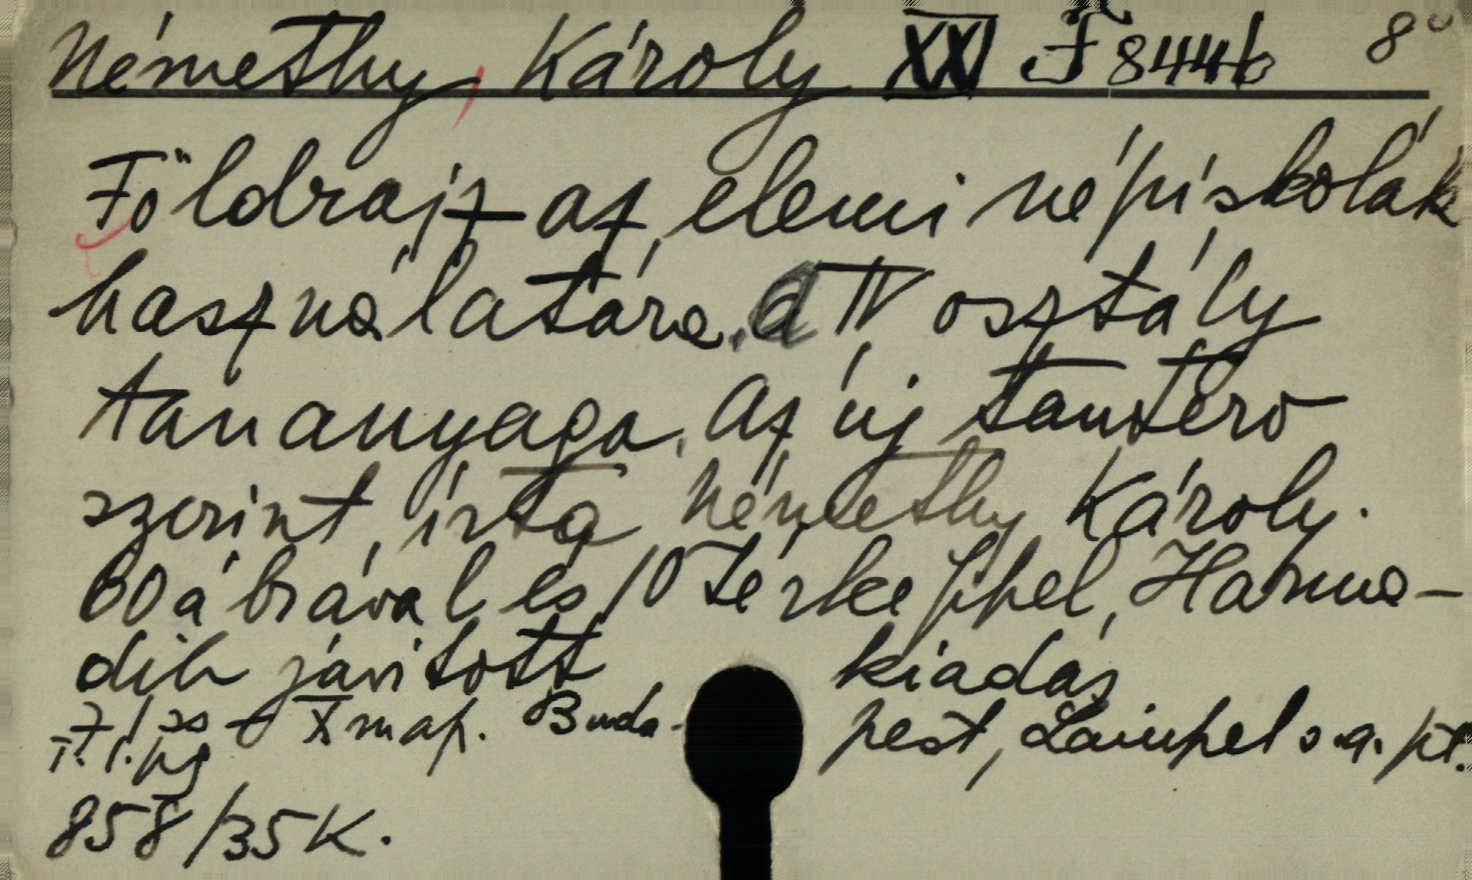 Némethy, Károly XXI F 844b 8°
Földrajz az elemi népiskolák
használatára. a IV osztály
tananyaga. Az új tanterv
szerint, írta Némethy Károly.
60 ábrával és 10 térképpel, Harma-
dik javitott kiadás
X map. Buda- pest, Lampel s.a. pt.
858/35K.